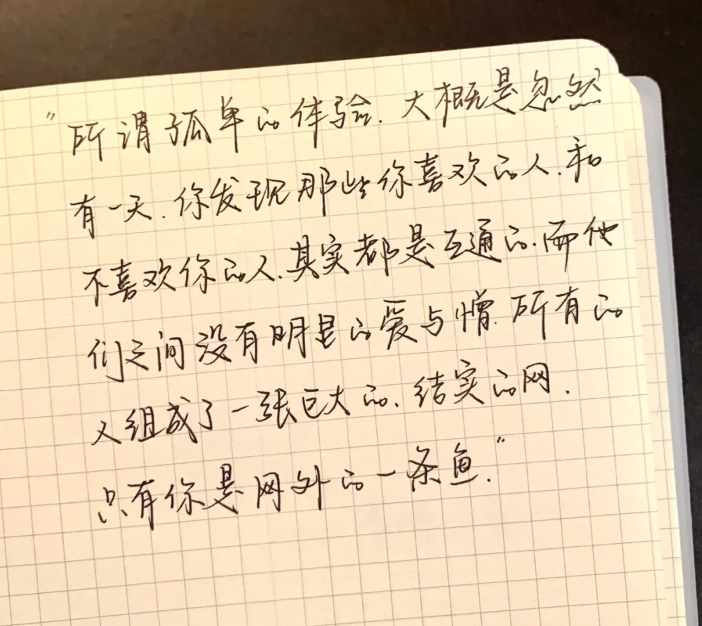 “所谓孤单的体验.大概是忽然
有一天.你发现那些你喜欢的人.和
不喜欢你的人.其实都是互通的.而他
们之间没有明显的爱与憎.所有的
人组成了一张巨大的.结实的网.
只有你是网外的一条鱼.”